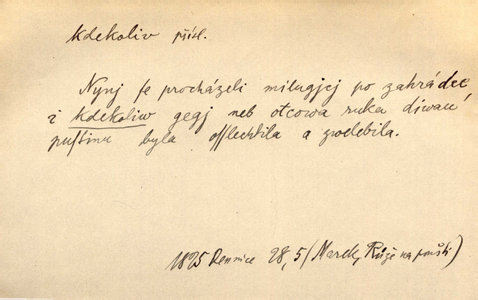 kdekoliv přísl.
Nynj se procházeli milugjcj po zahrádce
i kdekoliw gegj neb otcowa ruka diwau
pustinu byla osslechtila a zwelebila.
1825 Dennice 28,5 (Marek, Růže na poušti)